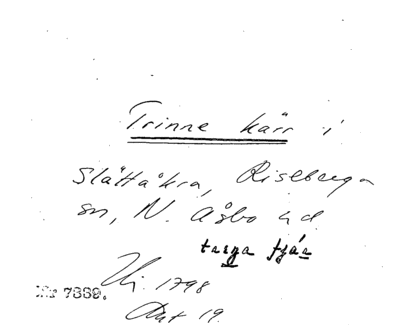 Trinne kärr i
Slättåkra, Riseberga
sn, N. Åsbo hd.
Nr 7889.
1798
Akt 19.